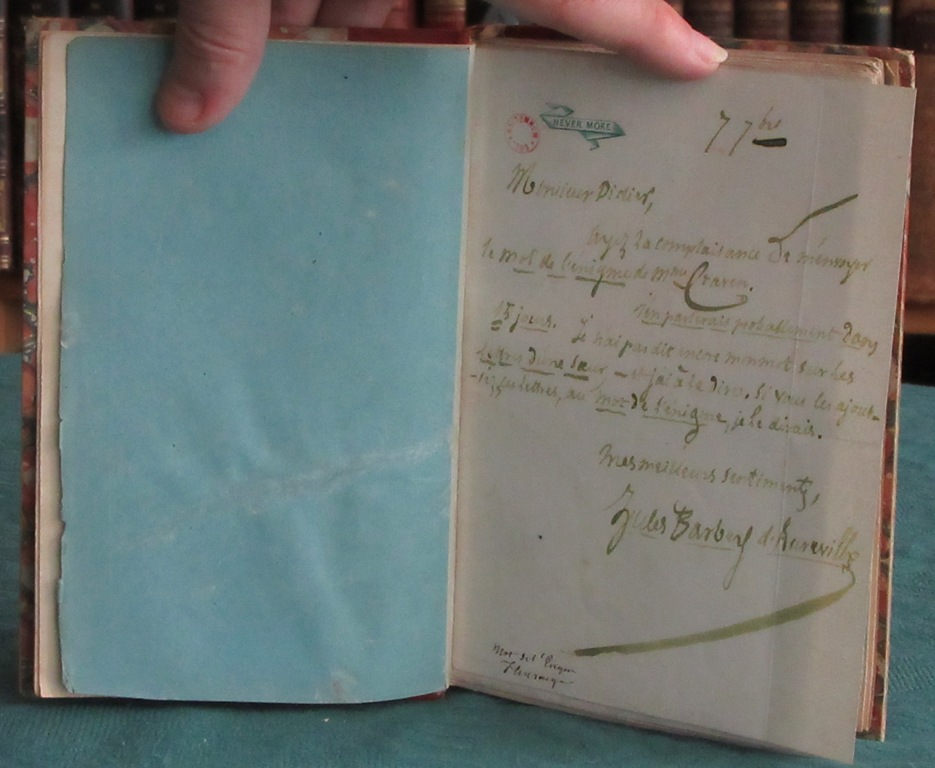 NEVER MORE
7 7bre
Monsieur Didier,
ayez la complaisance de m'envoyer
le mot de l'énigme de Mme Craven.
J'en parlerais probablement dans
15 jours. Je n'ai pas dit encore mon mot sur les
lettres d'une sœur – et j'ai à le dire. Si vous les ajout-
-iez ces lettres, au mot de l'énigme, je le dirais.
Mes meilleurs sentiments,
Jules Barbey d'Aurevilly
Mot de l'